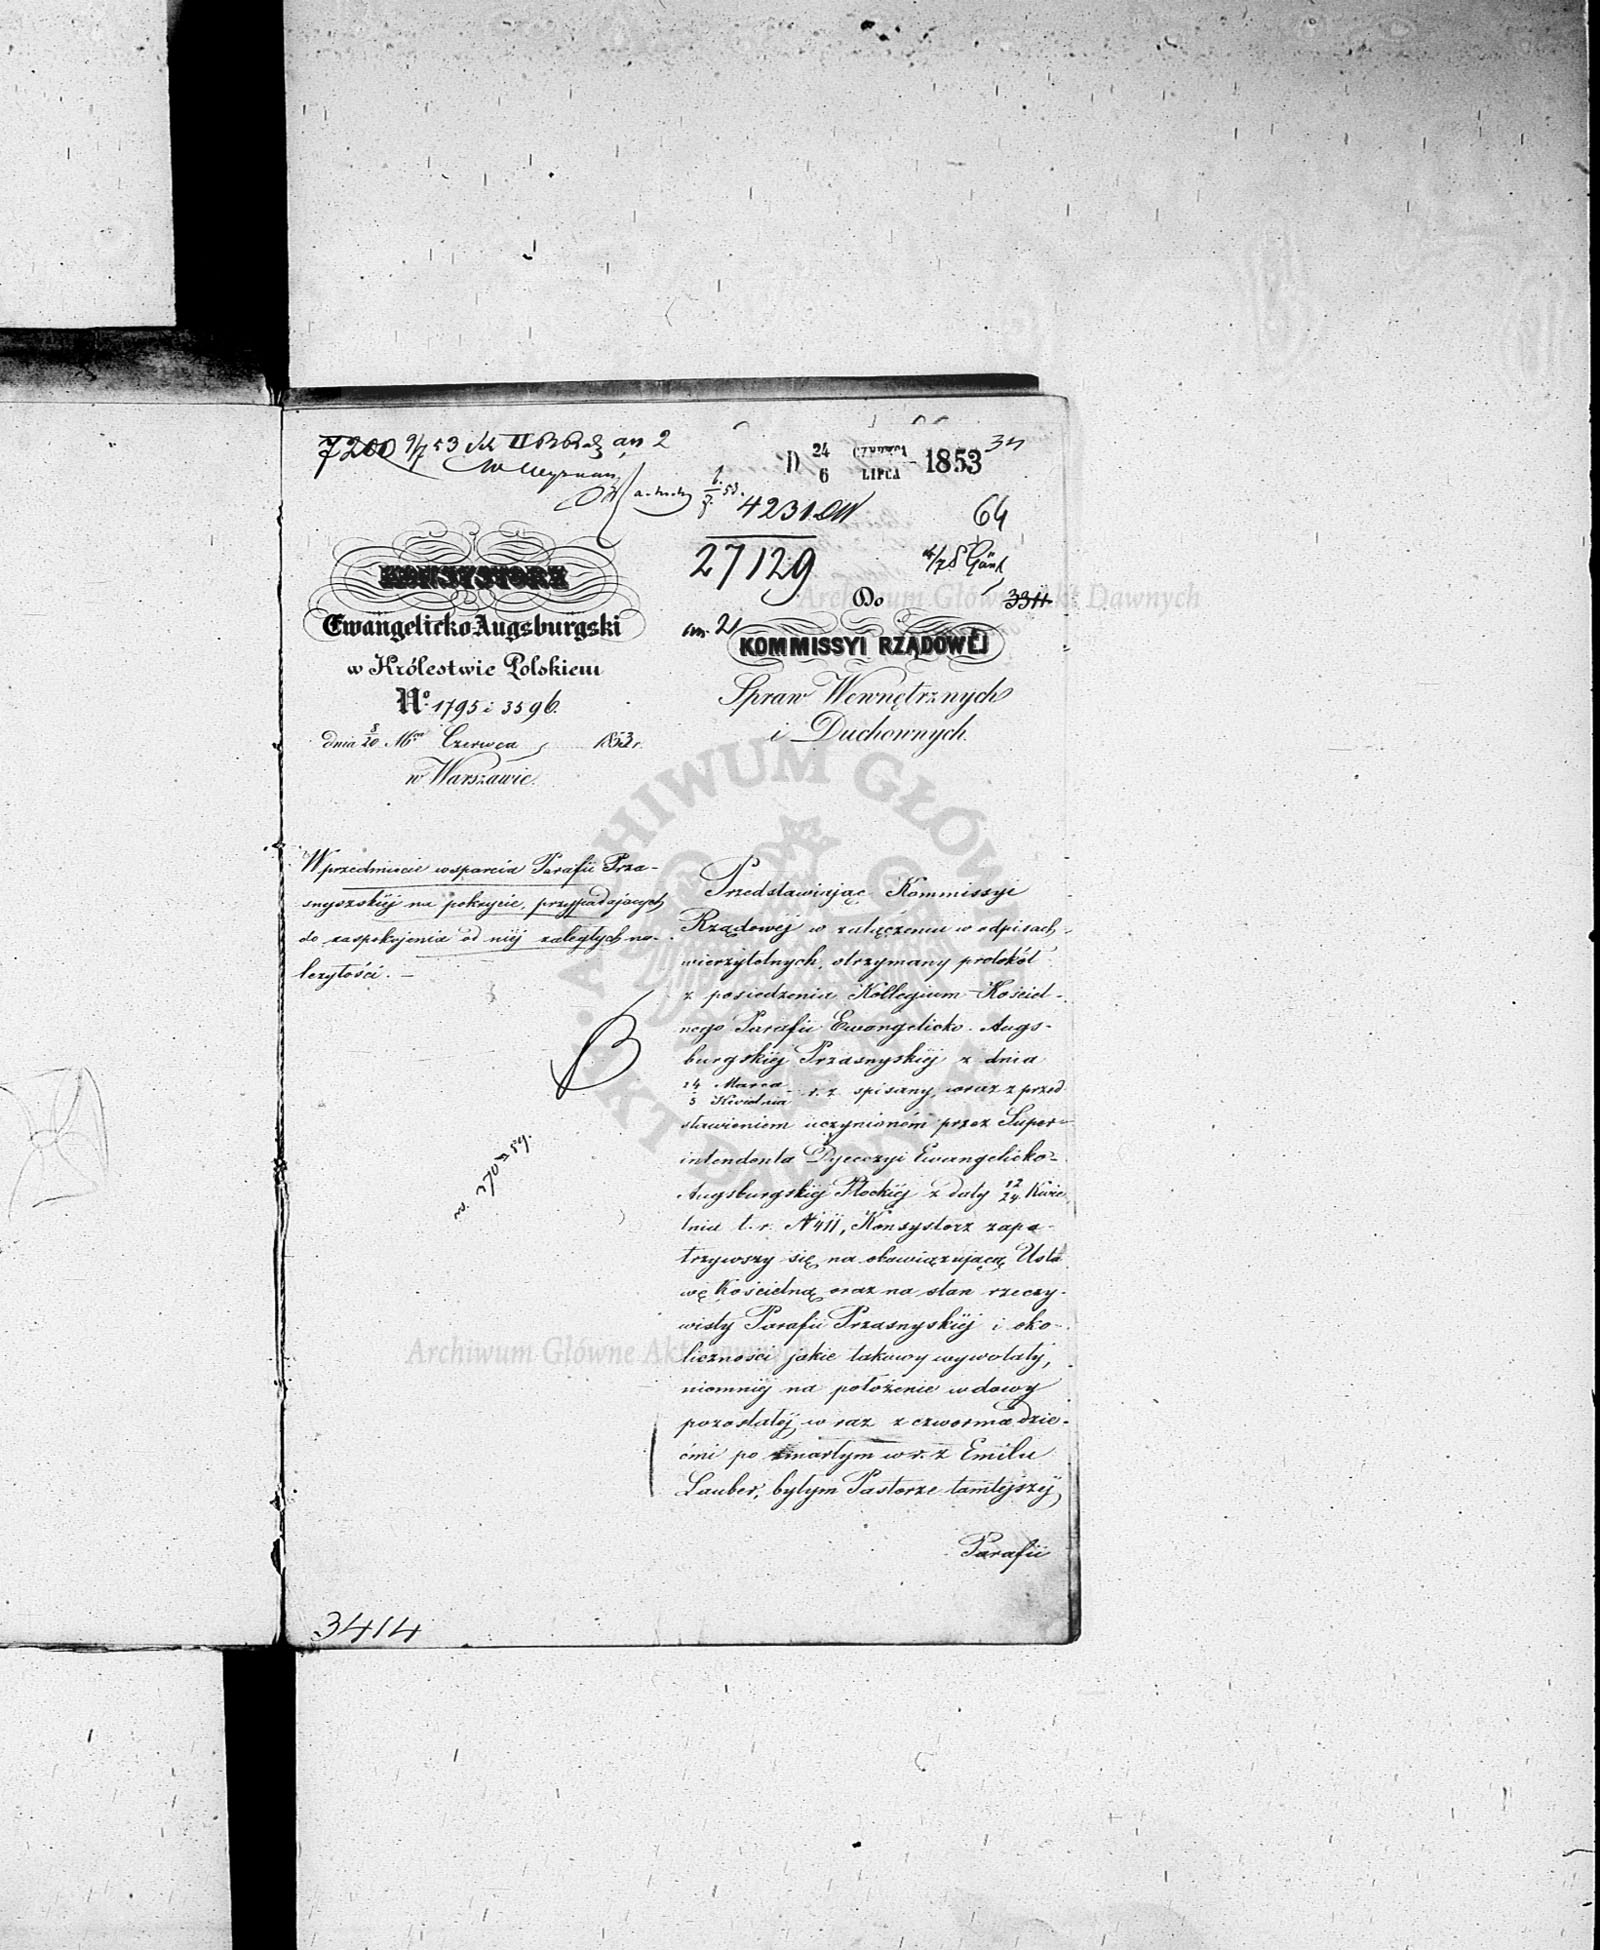 7200 9/7 53 II an 2
D 24/6 CZERWCA/LIPCA 1853
4231
64
27129
3311
KONSYSTORZ
Ewangelicko Augsburgski
w Królestwie Polskiem
No. 1795 i 3596.
dnia 8/20 Mca Czerwca 1853 r.
w Warszawie.
Do
an. 2
KOMMISSYI RZĄDOWÉJ
Spraw Wewnętrznych
i Duchownych.
W przedmiocie wsparcia Parafii Prza-
snyszskiéj na pokrycie, przypadających
do zaspokojenia od niéj zaległych na-
leżytości. —
Przedstawiając Kommissyi
Rządowéj w załączeniu w odpisach
wierzytelnych, otrzymany protokół
z posiedzenia Kollegium Kościel-
nego Parafii Ewangelicko-Augs-
burgskiéj Przasnyskiéj z dnia
24 Marca/5 Kwietnia r. z. spisany, wraz z przed
stawieniem uczynioném przez Super-
intendenta Dyecezyi Ewangelicko-
Augsburgskiéj Płockiéj z daty 12/24 Kwie
tnia t. r. N 411, Konsystorz zapa-
trzywszy się na obowiązującą Usta
wę Kościelną oraz na stan rzeczy-
wisty Parafii Przasnyskiéj i oko-
liczności jakie takowy wywołały,
niemniéj na położenie wdowy
pozostałéj wraz z czworma dzie-
ćmi po zmarłym w r. z. Emilu
Lauber, byłym Pastorze tamtejszéj
Parafii
3414
Archiwum Główne Akt Dawnych
Archiwum Główne Akt Dawnych
ARCHIWUM GŁÓWNE AKT DAWNYCH